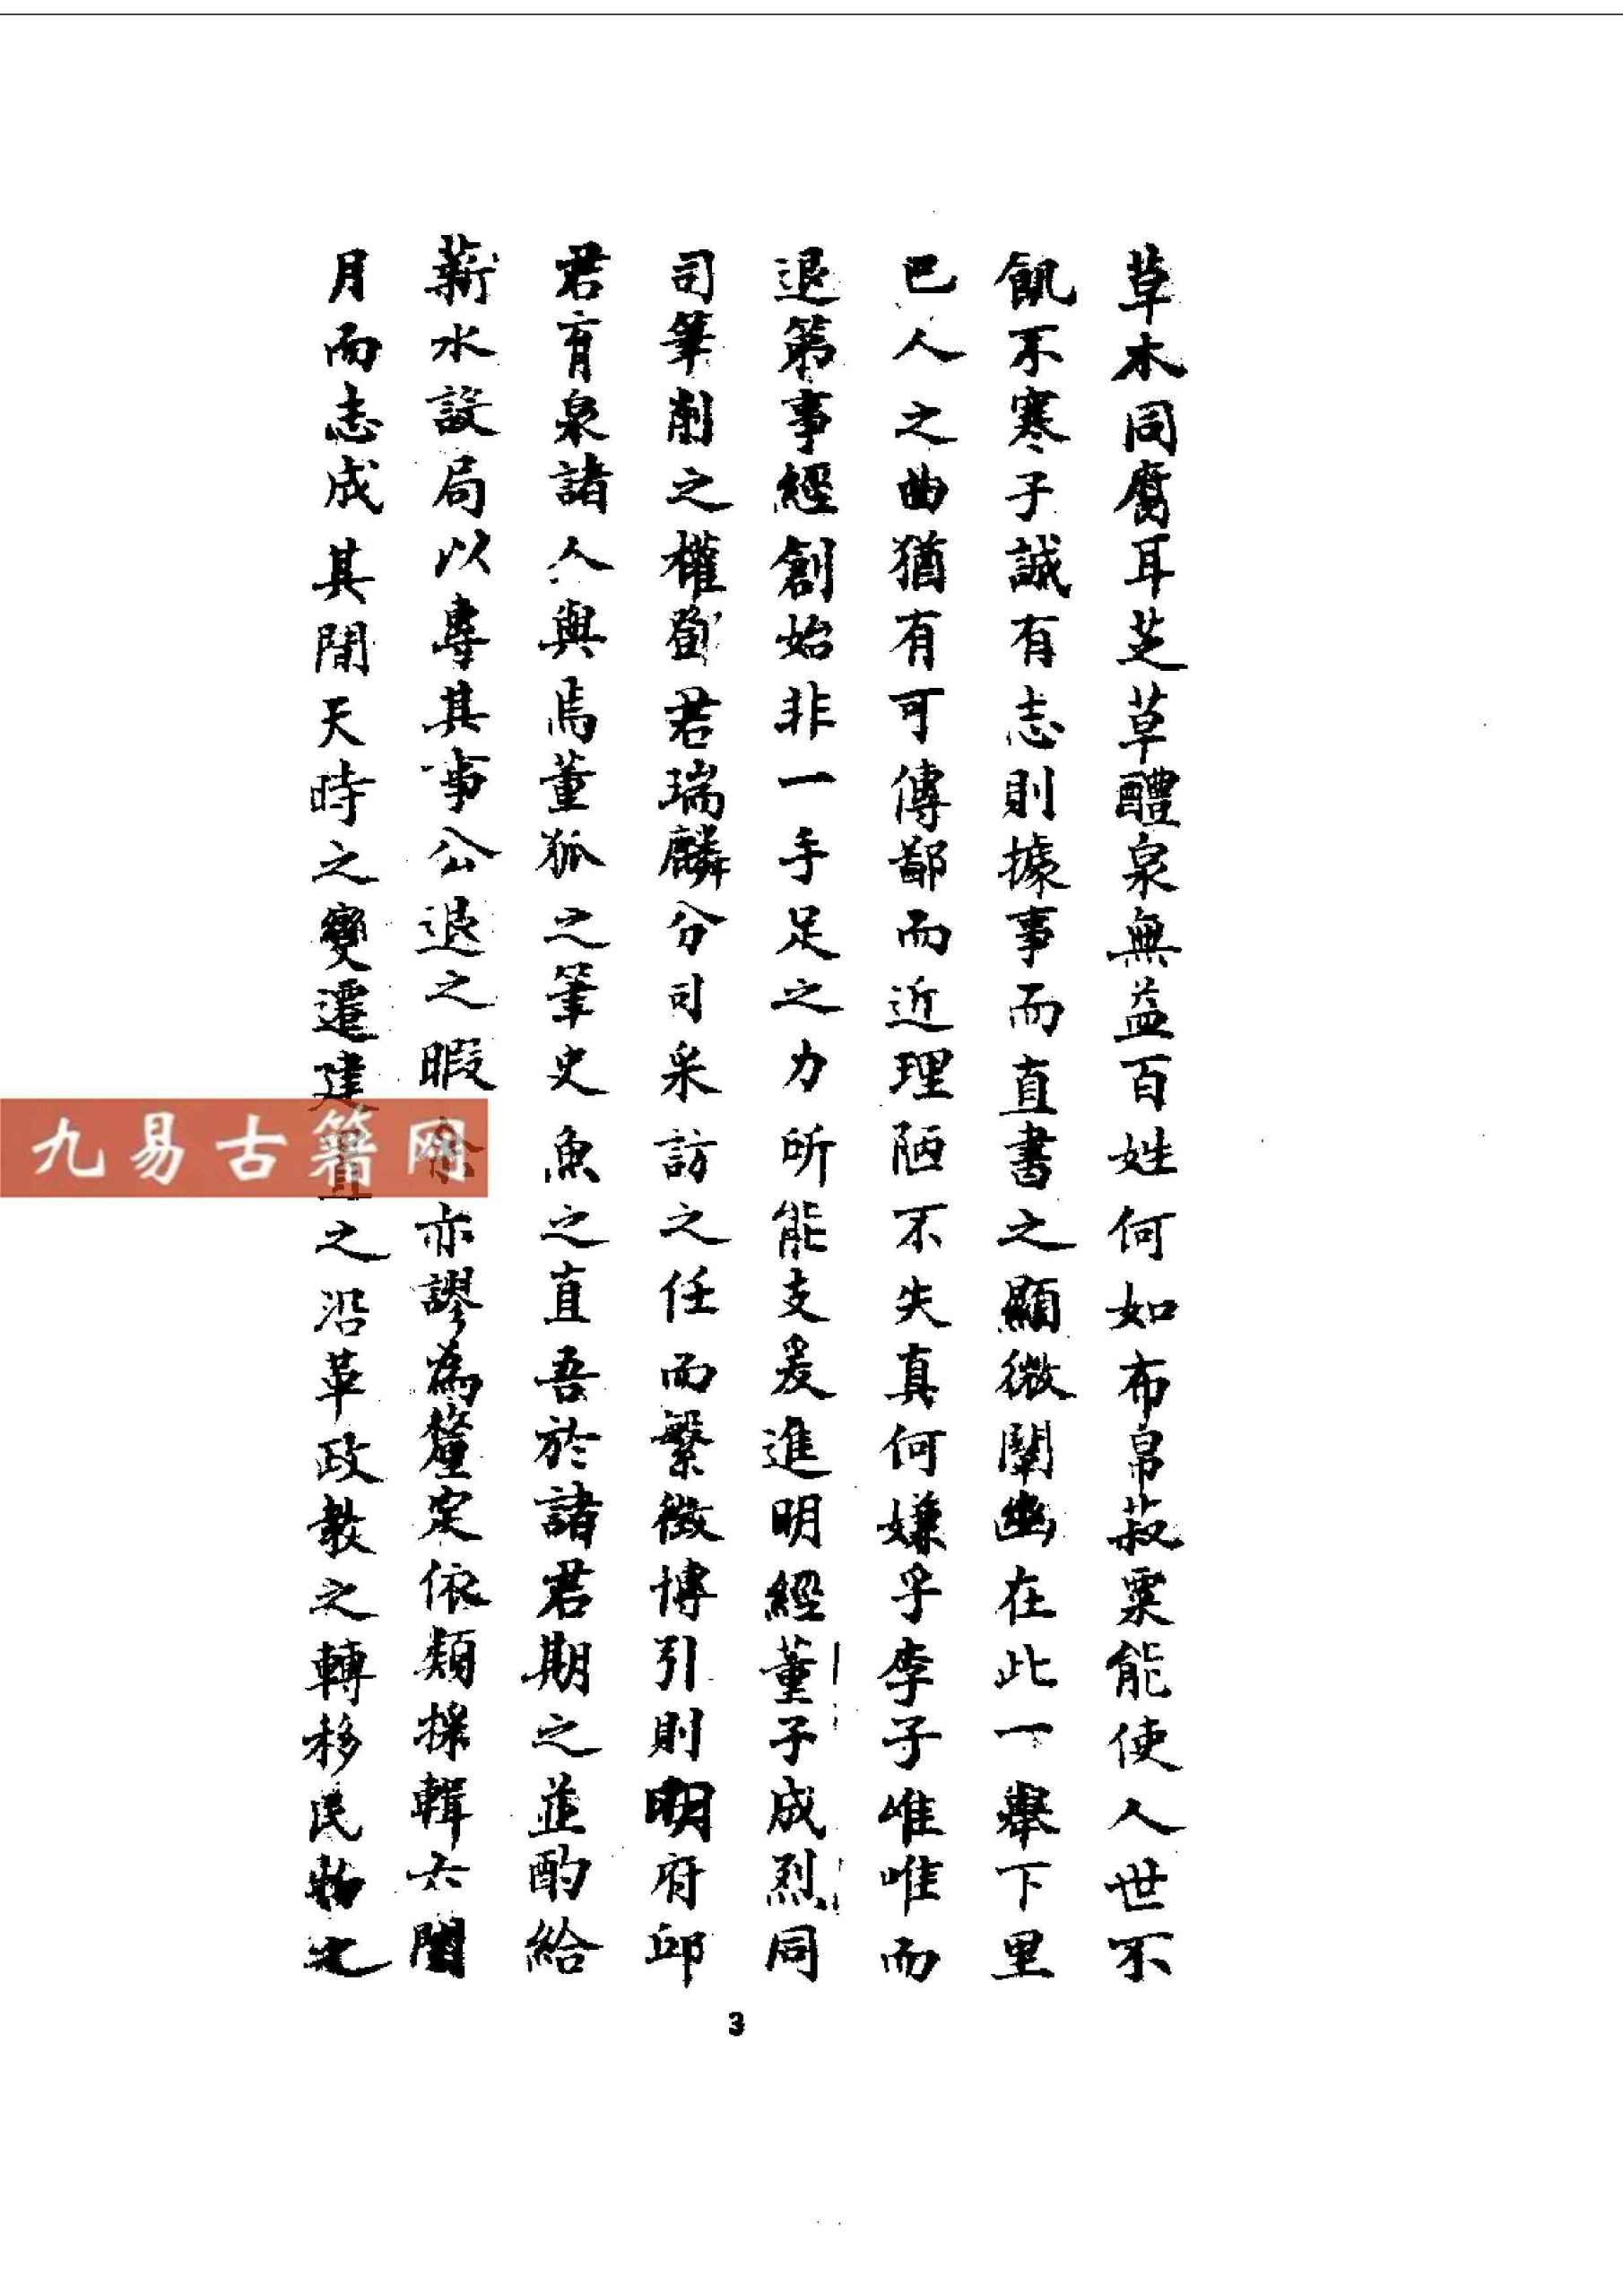 草木同腐耳芝草醴泉無益百姓何如布帛菽粟能使人世不
飢不寒子誠有志則據事而直書之顯微闡幽在此一舉下里
巴人之曲猶有可傳鄙而近理陋不失真何嫌乎李子唯唯而
退第事經創始非一手足之力所能支爰進明經董子成烈同
司筆削之權鄧君瑞麟分司采訪之任而繁徵博引則明府邱
君育泉諸人與焉董狐之筆史魚之直吾於諸君期之並酌給
薪水設局以專其事公退之暇余亦謬為釐定依類採輯六閱
月而志成其閒天時之變遷建置之沿革政教之轉移民物之
九易古籍网
3